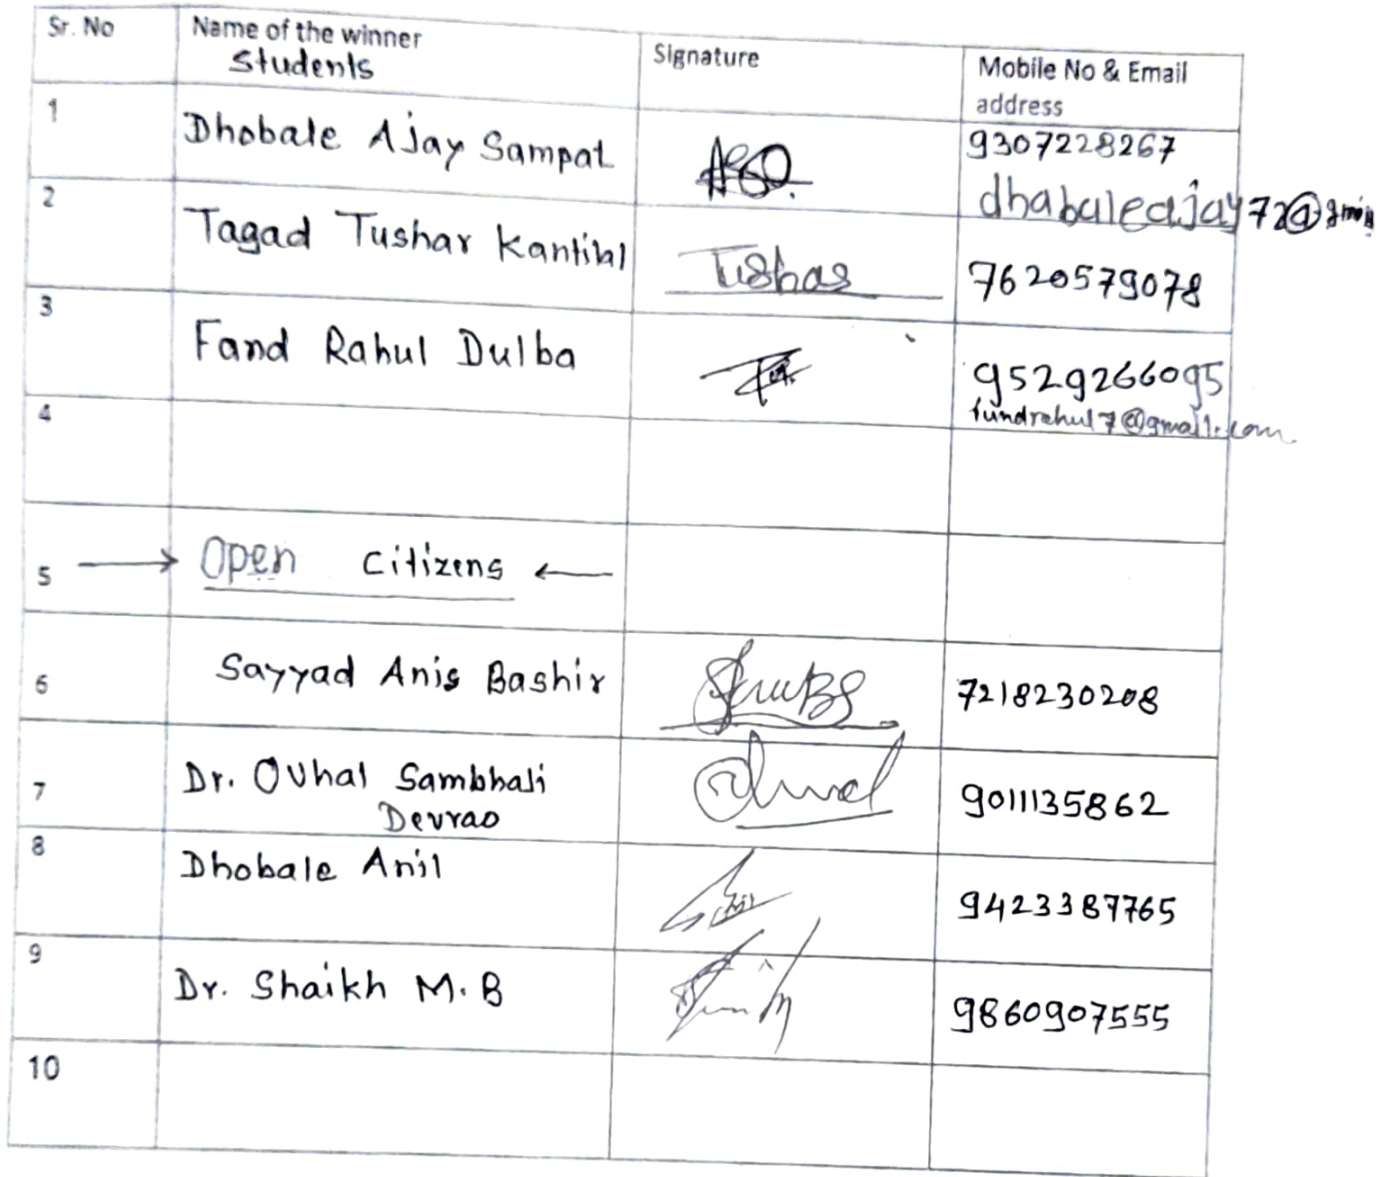 Sr. No Name of the winner Signature Mobile No & Email
Students address
1 Dhobale Ajay Sampat 9307228267
dhabaleajay72@
2 Tagad Tushar Kantilal Tushar 7620579078
3 Fand Rahul Dulba 9529266095
fundrahul7@gmail.com
4
5 → Open Citizens ←
6 Sayyad Anis Bashir 7218230208
7 Dr. Ovhal Sambhaji 9011135862
Devrao
8 Dhobale Anil 9423387765
9 Dr. Shaikh M.B 9860907555
10